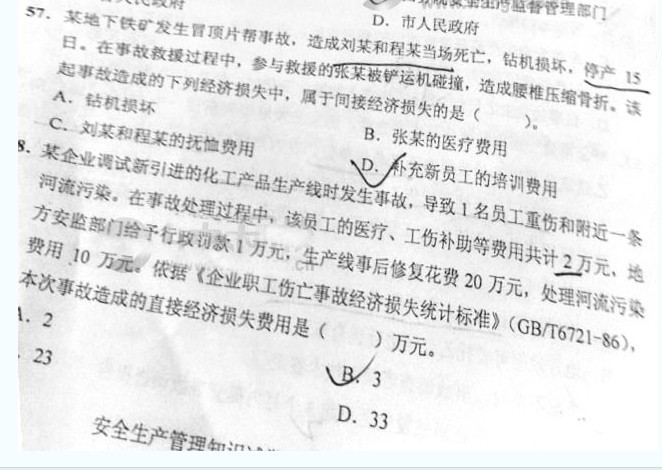 人民政府
监督管理部门
D．市人民政府
57．某地下铁矿发生冒顶片帮事故，造成刘某和程某当场死亡，钻机损坏，停产 15
日。在事故救援过程中，参与救援的张某被铲运机碰撞，造成腰椎压缩骨折。该
起事故造成的下列经济损失中，属于间接经济损失的是（　　）。
A．钻机损坏
B．张某的医疗费用
C．刘某和程某的抚恤费用
D．补充新员工的培训费用
8．某企业调试新引进的化工产品生产线时发生事故，导致 1 名员工重伤和附近一条
河流污染。在事故处理过程中，该员工的医疗、工伤补助等费用共计 2 万元，地
方安监部门给予行政罚款 1 万元，生产线事后修复花费 20 万元，处理河流污染
费用 10 万元。依据《企业职工伤亡事故经济损失统计标准》（GB/T6721-86），
本次事故造成的直接经济损失费用是（　　）万元。
A．2
B．3
．23
D．33
安全生产管理知识试